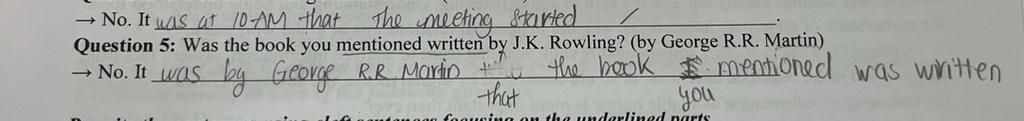 → No. It was at 10 AM that the meeting started /.
Question 5: Was the book you mentioned written by J.K. Rowling? (by George R.R. Martin)
→ No. It was by George R.R Martin the book mentioned was written
that you
cleft sentences focusing on the underlined parts